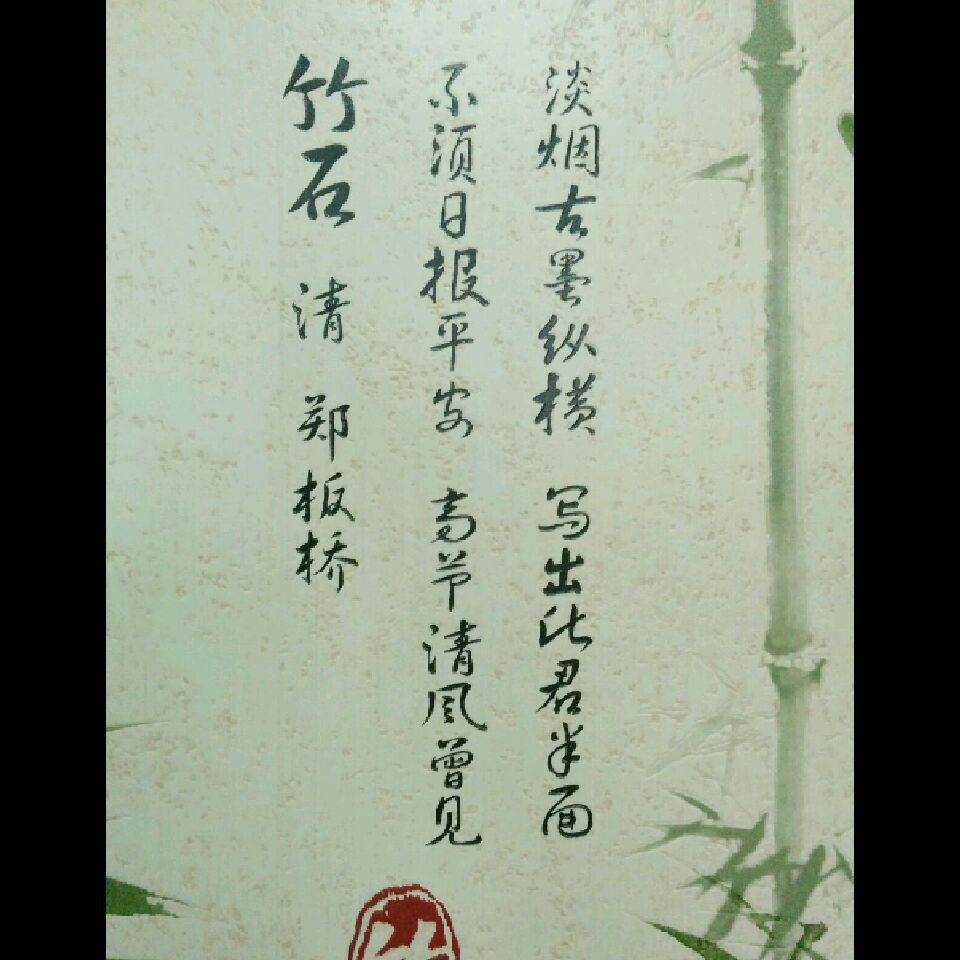 淡烟古墨纵横 写出此君半面
不须日报平安 高节清风曾见
竹石 清 郑板桥